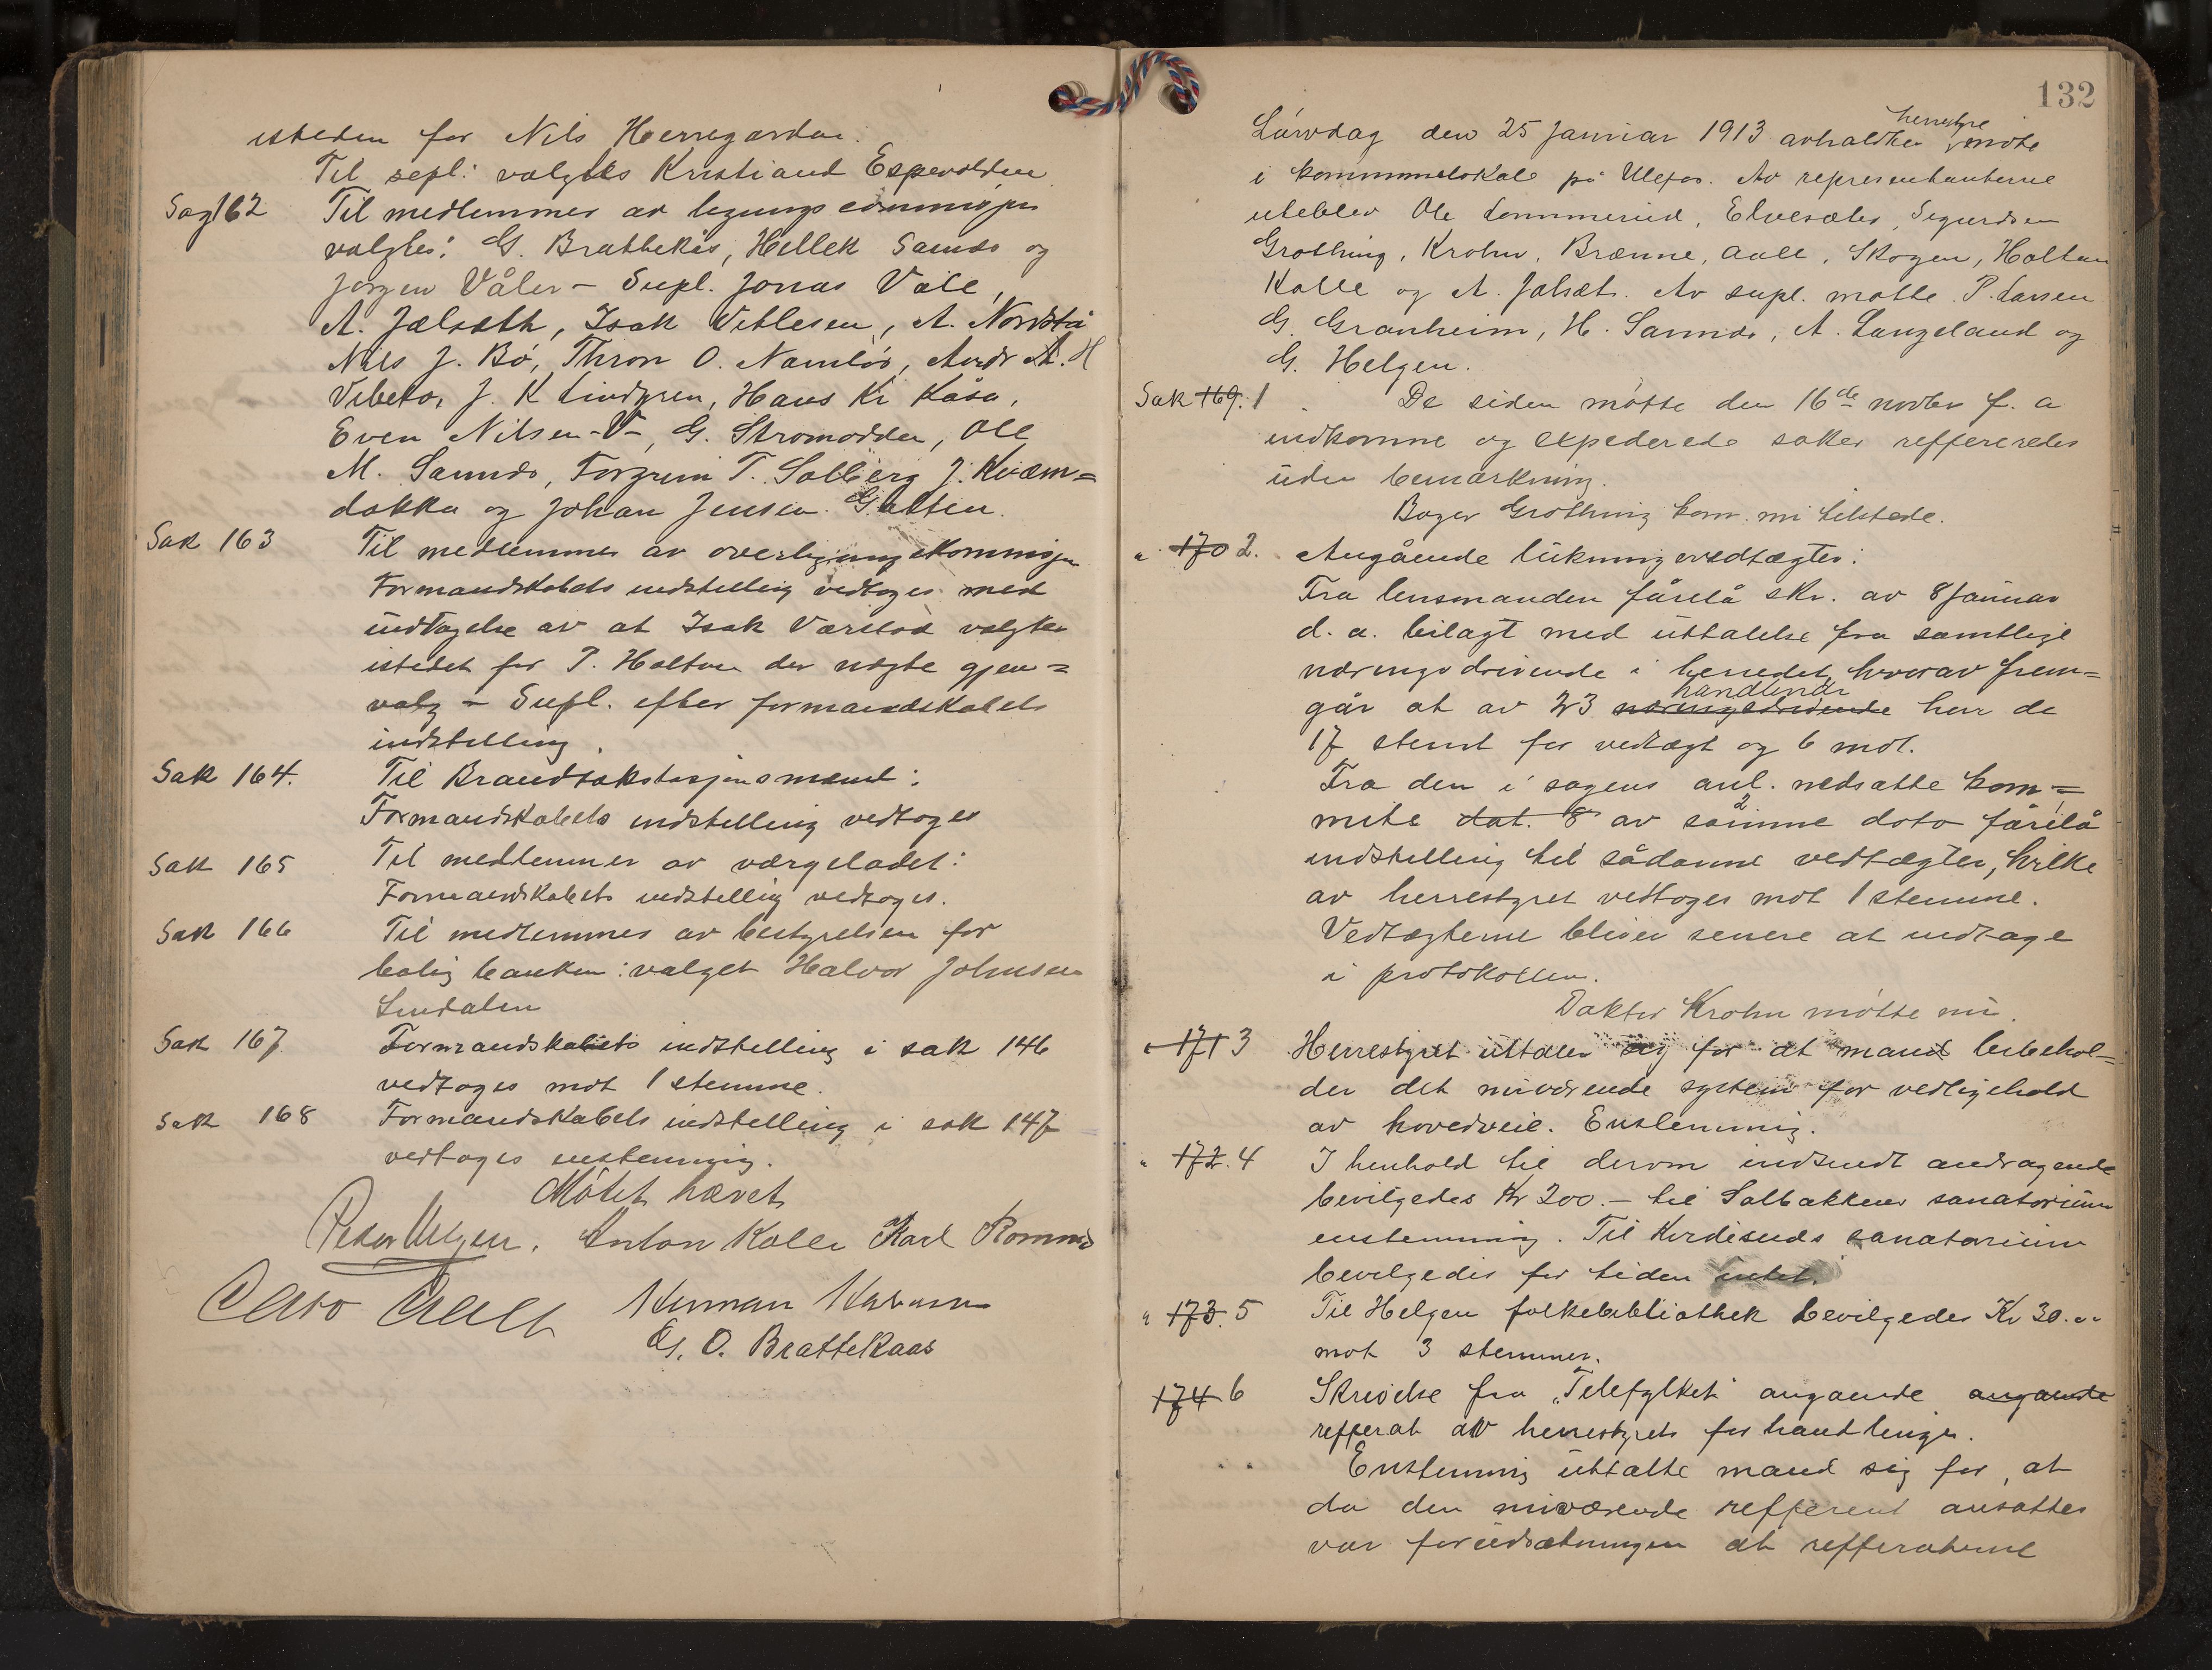 isteden for Nils Herregarden.
Til sepl: valgtes Kristiand Espevolden
Sag 162 Til medlemmer av ligningscommisjon
valgtes: G. Brattekås, Hellek Saunds og
Jørgen Våler - Supl. Jonas Vale,
A. Jælseth, Isak Vetlesen, A. Nordstå
Nils J. Bø, Thron O. Namløs, Andr A. H
Vibeto, J. K Lindgren, Hans Kr Kåsa,
Even Nilsen -V-, G. Strømodden, Ole
M. Saunds, Torgrim T. Solberg J. Kvæm=
dokka og Johan Jensen Galten.
Sak 163 Til medlemmer av overligningskommisjon
Formandskabets indstilling vedtoges med
undtagelse av at IsakVærstad valgtes
istedet for P. Holtan der nægte gjen=
valg - Supl. efter formandskabets
indstilling.
Sak 164. Til Brandtakstasjonsmænd:
Formandskabets indstilling vedtoges
Sak 165 Til medlemmer av værgerådet:
Formandskabets indstillig vedtoges.
Sak 166 Til medlemmer av bestyrelsen for
bolig banken: valget Halvor Johnsen
Lindalen
Sak 167. Formandskabets indstilling i sak 146
vedtoges mot 1 stemme.
Sak 168 Formandskabets indstilling i sak 147
vedtoges enstemmig.
Møtet hævet
Peder Helgen. Anton Kolle Karl Romnes
Cato Aall Herman
G. O. Brattekaas
132
Lørdag den 25 Januar 1913 avholdtes herrestyre møte
i kommunelokale på Ulefos. Av representanterne
uteblev Ole Lommerud, Elvesæter, Sigurdsen
Grothing, Krohn, Brænne, Aall, Skogen, Holtan
Kolle og A. Jalsæt. Av supl. møtte P. Larsen
G. Granheim, H. Saunds, A. Langeland og
G. Helgen.
Sak 169. 1 De siden møtte den 16de novbr f. a
indkomne og expederede saker reffereredes
uden bemærkning.
Boger Grothing kom nu tilstede.
" 170 2. Angående lukningsvedtægter:
Fra lensmanden fårelå skr. av 8 Januar
d. a. bilagt med uttalelse fra samtlige
næringsdrivende i herredet, hvorav frem=
går at av 23 næringsdrivende handlende har de
17 stemt for vedtægt og 6 mot.
Fra den i sagens anl. nedsatte kom=
mite dat. 8 av 2 samme dato fårelå
indstilling til sådanne vedtægter, hvilke
av herrestyret vedtoges mot 1 stemme.
Vedtægterne bliver senere at indtage
i protokollen.
Doktor Krohn møtte nu.
" 171 3 Herrestyret uttaler sig for at mand bibehol=
der det nuværende system for vedligehold
av hovedveie. Enstemmig.
" 172. 4 I henhold til derom indsendt andragende
bevilgedes Kr 200.- til Solbakkens sanatorium
enstemmig. Til sanatorium
bevilgedes for tiden intet.
" 173. 5 Til Helgen folkebibliothek bevilgedes Kr 30.--
mot 3 stemmer.
174 6 Skrivelse fra "Telefylket" angaende angaende
refferat av herrestyrets forhandlinger.
Enstemmig uttalte mand sig for, at
da den nuværende refferent ansattes
var forudsætningen at refferaterne